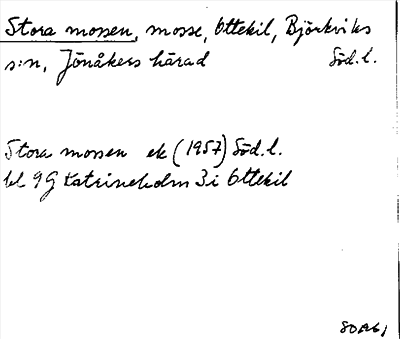 Stora mossen, mosse, Ottekil, Björkviks
s:n, Jönåkers härad Söd.l.
Stora mossen ek (1957) Söd.l.
bl 9G Katrineholm 3i Ottekil